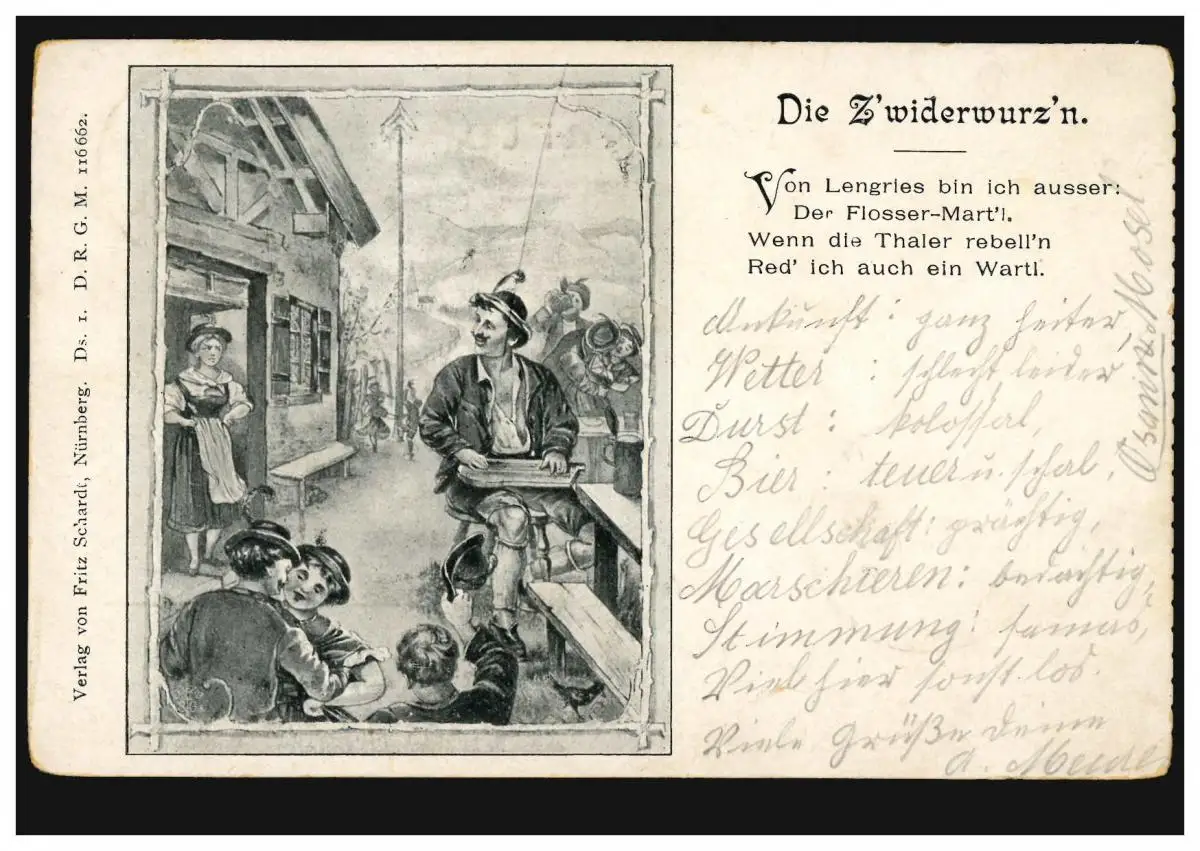 Verlag von Fritz Schardt, Nürnberg. Ds. 1. D. R. G. M. 116662.
Die Z'widerwurz'n.
Von Lengries bin ich ausser:
Der Flosser-Mart'l.
Wenn die Thaler rebell'n
Red' ich auch ein Wartl.
Ankunft: ganz heiter,
Wetter : schlecht leider
Durst : kolossal,
Bier : teuer u. schal,
Gesellschaft: prächtig,
Marschieren: bedächtig,
Stimmung: famos,
Viel hier sonst los.
Viele Grüße Deine
A.
Mosel